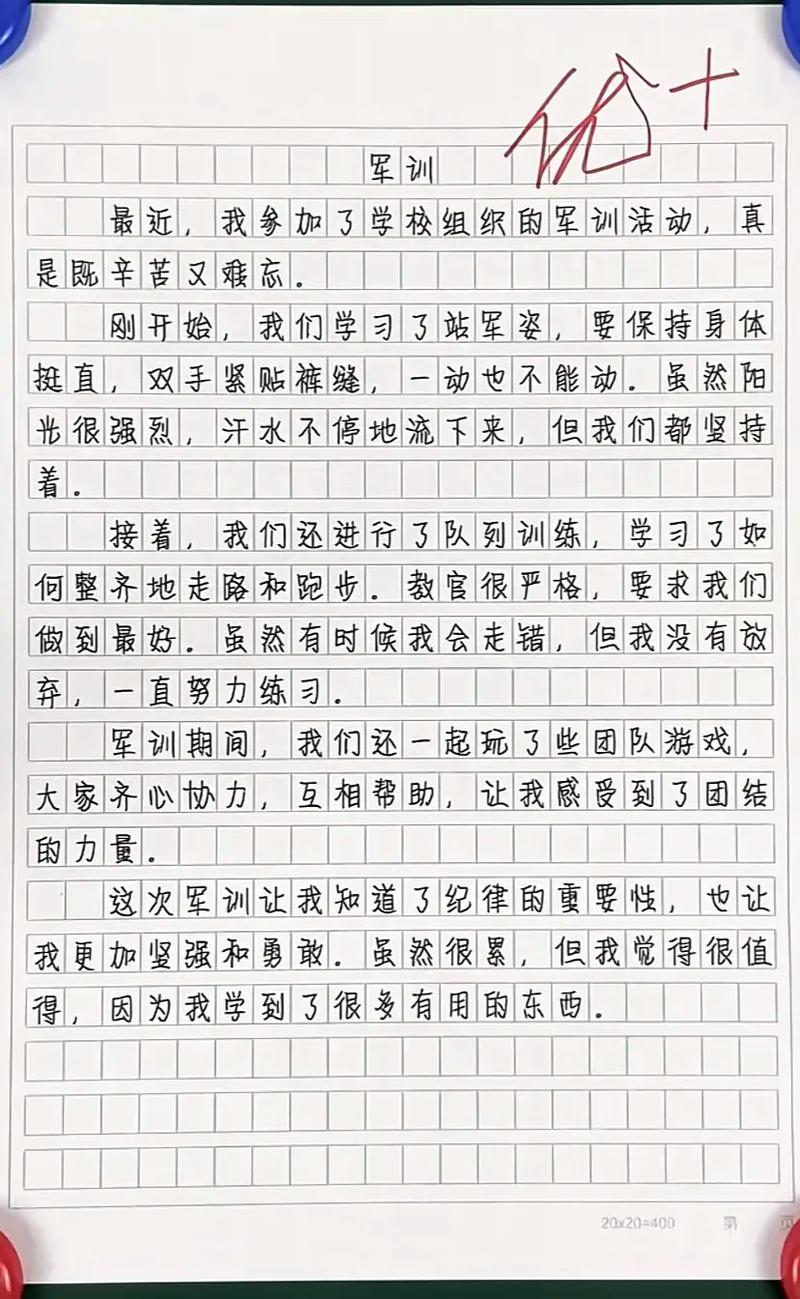 优+
军训
最近，我参加了学校组织的军训活动，真
是既辛苦又难忘。
刚开始，我们学习了站军姿，要保持身体
挺直，双手紧贴裤缝，一动也不能动。虽然阳
光很强烈，汗水不停地流下来，但我们都坚持
着。
接着，我们还进行了队列训练，学习了如
何整齐地走路和跑步。教官很严格，要求我们
做到最好。虽然有时候我会走错，但我没有放
弃，一直努力练习。
军训期间，我们还一起玩了些团队游戏，
大家齐心协力，互相帮助，让我感受到了团结
的力量。
这次军训让我知道了纪律的重要性，也让
我更加坚强和勇敢。虽然很累，但我觉得很值
得，因为我学到了很多有用的东西。
20x20=400 第 页